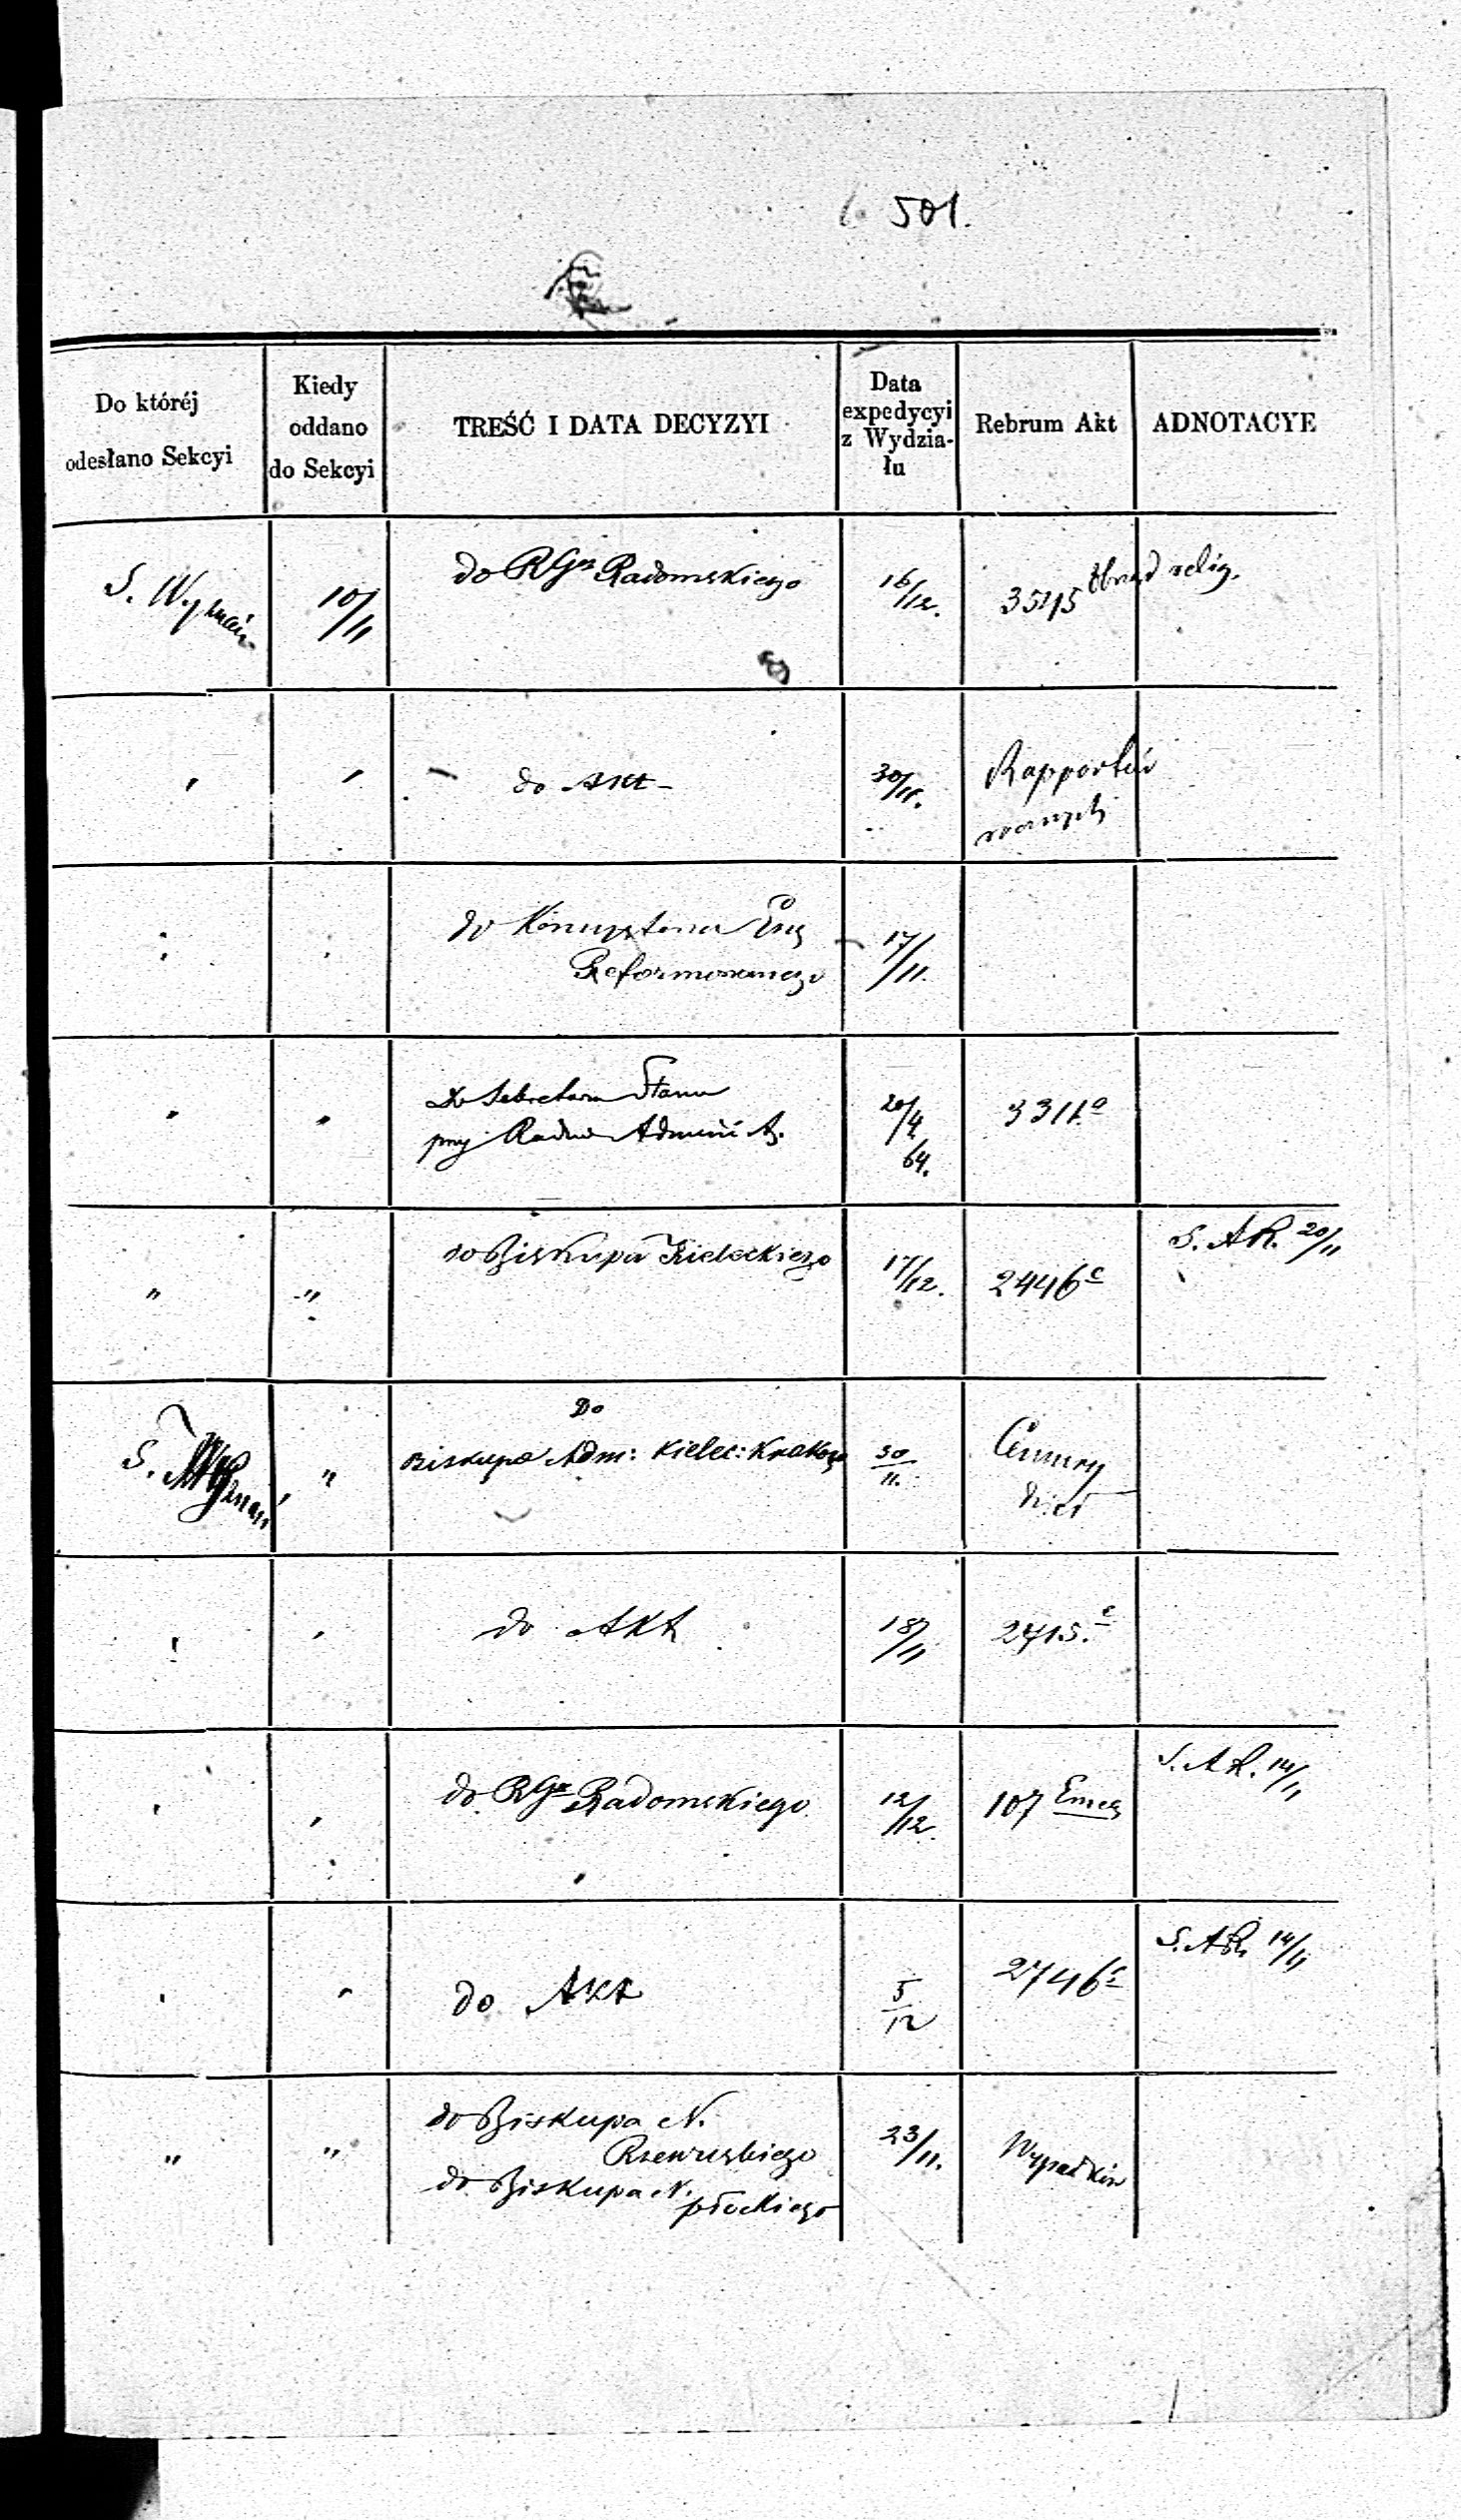 501.
Do któréj
odesłano Sekcyi
Kiedy
oddano
do Sekcyi
TREŚĆ I DATA DECYZYI
Data
expedycyi
z Wydzia-
łu
Rebrum Akt
ADNOTACYE
S. Wyznań
10/11
do RGu Radomskiego
16/12.
3545 Obrząd relig.
do Akt
30/11.
Rapportów
do Konsystorza Ewg
Reformowanego
17/11.
Do Sekretarza Stanu
przy Radzie Administ.
20/4
64.
3311.a
do Biskupa Kieleckiego
17/12.
2446 c
S. AR. 20/11
" "
S. Wyznań
"
Do
Biskupa Adm: Kielec: Krakow
30
11.
Cenzury
do Akt
18/11
2415. c
do RGu Radomskiego
12/12.
107 Emer
S. AR. 14/11
do Akt
5
12
2746 c
S. AR 14/11
" "
do Biskupa N.
Rzewuskiego
do Biskupa N.
płockiego
23/11.
Wypadków